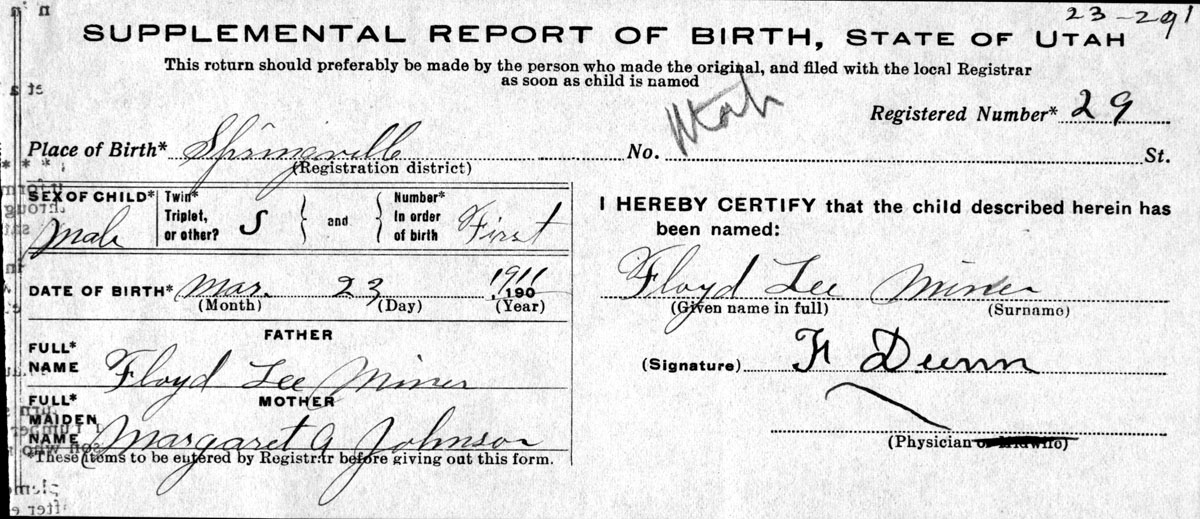 23-291
SUPPLEMENTAL REPORT OF BIRTH, STATE OF UTAH
This return should preferably be made by the person who made the original, and filed with the local Registrar
as soon as child is named
Utah
Registered Number* 29
Place of Birth* Springville No. St.
(Registration district)
SEX OF CHILD* Male
Twin* Triplet, or other? S
and
Number* In order of birth First
I HEREBY CERTIFY that the child described herein has
been named:
DATE OF BIRTH* Mar. 23, 1911 190
(Month) (Day) (Year)
Floyd Lee Miner
(Given name in full) (Surname)
FATHER
FULL* NAME Floyd Lee Miner
(Signature) F Dunn
MOTHER
FULL* MAIDEN NAME Margaret A Johnson
(Physician or Midwife)
*These items to be entered by Registrar before giving out this form.